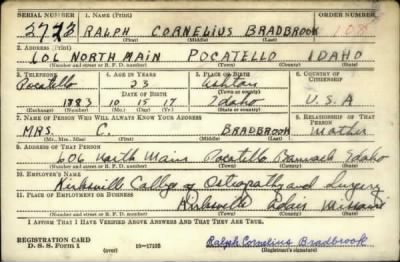 SERIAL NUMBER 1. NAME (Print) ORDER NUMBER
RALPH CORNELIUS BRADBROOK
(First) (Middle) (Last)
2. ADDRESS (Print)
606 NORTH MAIN POCATELLO IDAHO
(Number and street or R. F. D. number) (Town) (County) (State)
3. TELEPHONE 4. AGE IN YEARS 5. PLACE OF BIRTH 6. COUNTRY OF CITIZENSHIP
Pocatello 23 Ashton
DATE OF BIRTH (Town or county)
1883 10 15 17 Idaho U.S.A
(Exchange) (Number) (Mo.) (Day) (Yr.) (State or country)
7. NAME OF PERSON WHO WILL ALWAYS KNOW YOUR ADDRESS 8. RELATIONSHIP OF THAT PERSON
MRS. C. BRADBROOK Mother
(Mr., Mrs., Miss) (First) (Middle) (Last)
9. ADDRESS OF THAT PERSON
606 North Main Pocatello Bannock Idaho
(Number and street or R. F. D. number) (Town) (County) (State)
10. EMPLOYER'S NAME
Kirksville College of Osteopathy and Surgery
11. PLACE OF EMPLOYMENT OR BUSINESS
Kirksville Adair Missouri
(Number and street or R. F. D. number) (Town) (County) (State)
I AFFIRM THAT I HAVE VERIFIED ABOVE ANSWERS AND THAT THEY ARE TRUE.
REGISTRATION CARD
D. S. S. Form 1 (over) Ralph Cornelius Bradbrook
(Registrant's signature)